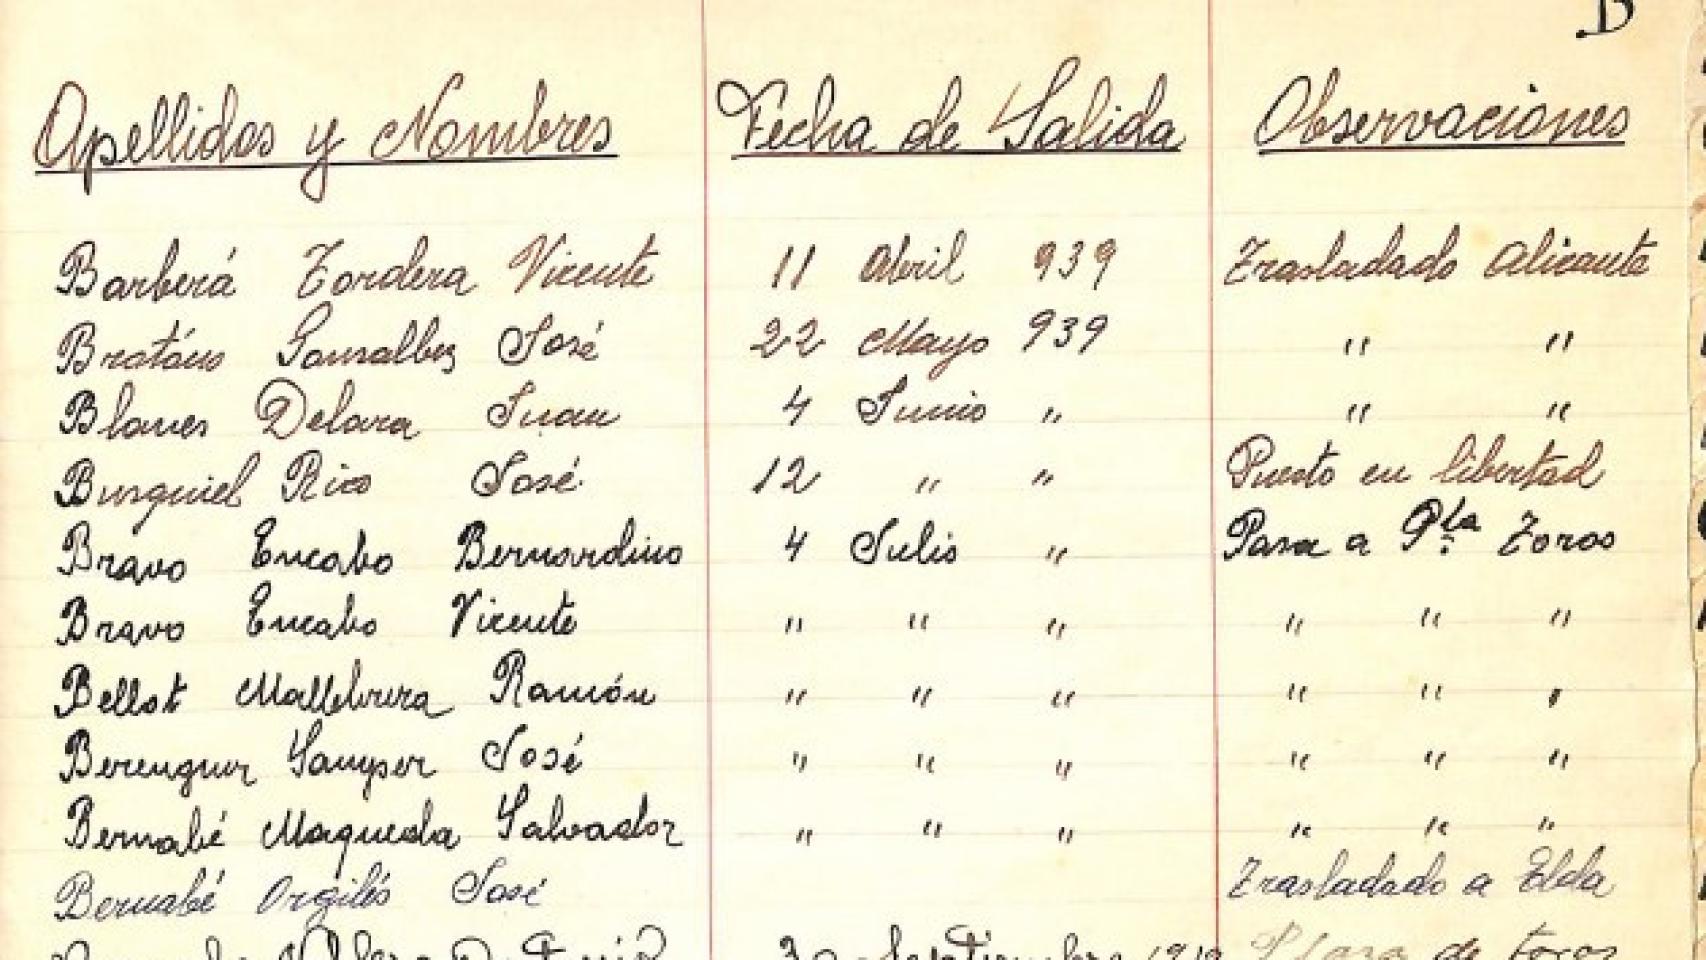 B
Apellidos y Nombres Fecha de Salida Observaciones
Barberá Tordera Vicente 11 Abril 939 Trasladado Alicante
José 22 Mayo 939 " "
Blanes Delara Juan 4 Junio " " "
Burguiel Rico José 12 " " Puesto en libertad
Bravo Encabo Bernardino 4 Julio " Pasa a Pla Toros
Bravo Encabo Vicente " " " " " "
Bellot Mallebrera Ramón " " " " " "
Berenguer Samper José " " " " " "
Bernabé Maqueda Salvador " " " " " "
Bernabé Orgilés José Trasladado a Elda
Septiembre Plaza de toros